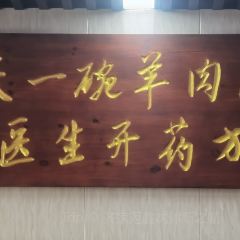 天一碗羊肉
医生开药方